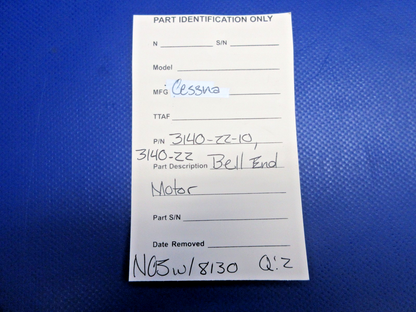 PART IDENTIFICATION ONLY
N S/N
Model
MFG Cessna
TTAF
P/N 3140-22-10,
3140-22 Bell End
Part Description
Motor
Part S/N
Date Removed
NOS w/8130 Q:2